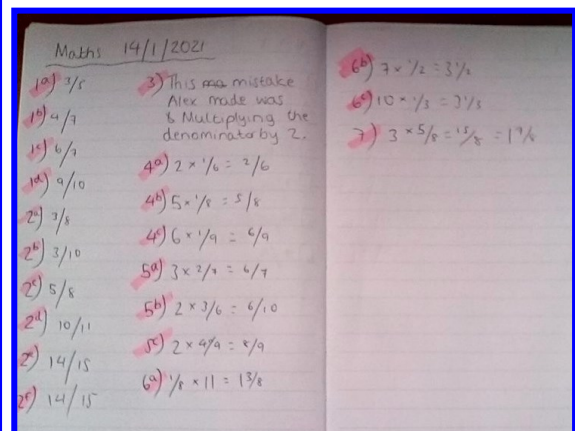 Maths 14/1/2021
1a) 3/5
1b) 4/7
1c) 6/7
1d) 9/10
2a) 3/8
2b) 3/10
2c) 5/8
2d) 10/11
2e) 14/15
2f) 14/15
3) This mistake
Alex made was
Multiplying the
denominator by 2.
4a) 2 × 1/6 = 2/6
4b) 5 × 1/8 = 5/8
4c) 6 × 1/9 = 6/9
5a) 3 × 2/7 = 6/7
5b) 2 × 3/6 = 6/10
5c) 2 × 4/9 = 8/9
6a) 1/8 × 11 = 1 3/8
6b) 7 × 1/2 = 3 1/2
6c) 10 × 1/3 = 3 1/3
7) 3 × 5/8 = 15/8 = 1 7/8